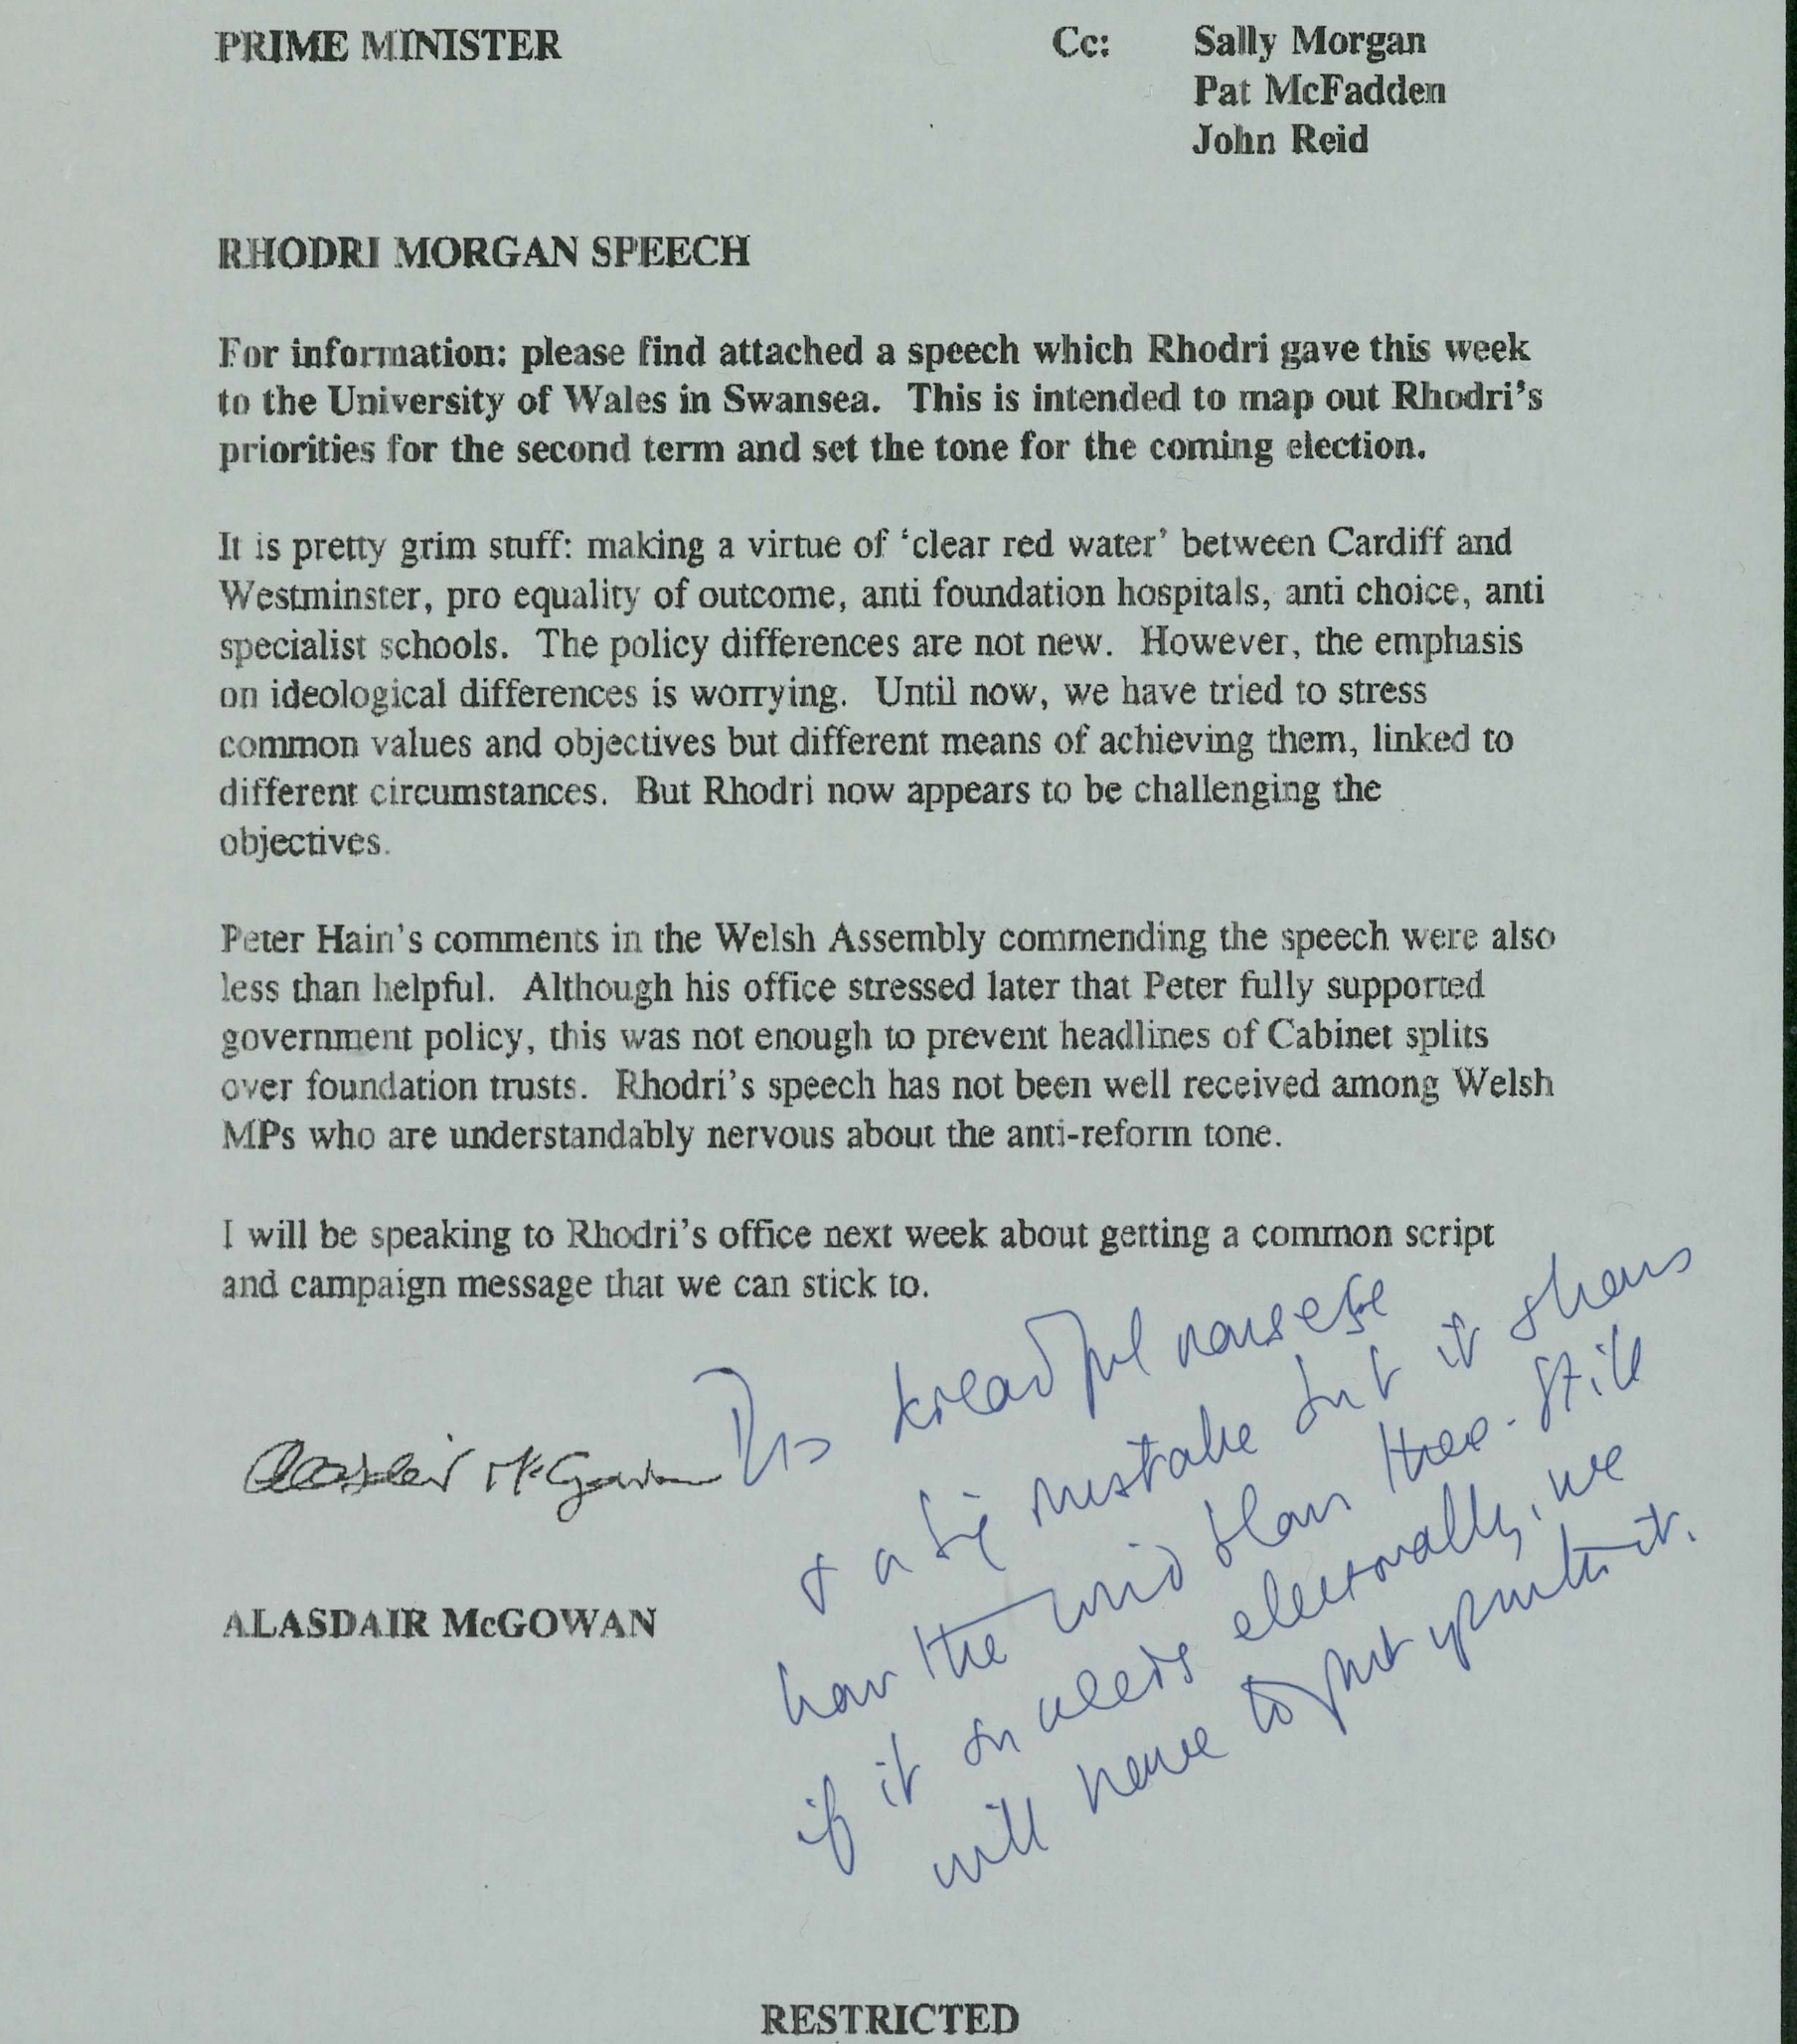 PRIME MINISTER
Cc: Sally Morgan
Pat McFadden
John Reid
RHODRI MORGAN SPEECH
For information: please find attached a speech which Rhodri gave this week
to the University of Wales in Swansea. This is intended to map out Rhodri's
priorities for the second term and set the tone for the coming election.
It is pretty grim stuff: making a virtue of 'clear red water' between Cardiff and
Westminster, pro equality of outcome, anti foundation hospitals, anti choice, anti
specialist schools. The policy differences are not new. However, the emphasis
on ideological differences is worrying. Until now, we have tried to stress
common values and objectives but different means of achieving them, linked to
different circumstances. But Rhodri now appears to be challenging the
objectives.
Peter Hain's comments in the Welsh Assembly commending the speech were also
less than helpful. Although his office stressed later that Peter fully supported
government policy, this was not enough to prevent headlines of Cabinet splits
over foundation trusts. Rhodri's speech has not been well received among Welsh
MPs who are understandably nervous about the anti-reform tone.
I will be speaking to Rhodri's office next week about getting a common script
and campaign message that we can stick to.
Alasdair McGowan
This dreadful nonsense
& a big mistake but it shows
how the wind blows there. Still
if it succeeds electorally, we
will have to put up with it.
ALASDAIR McGOWAN
RESTRICTED